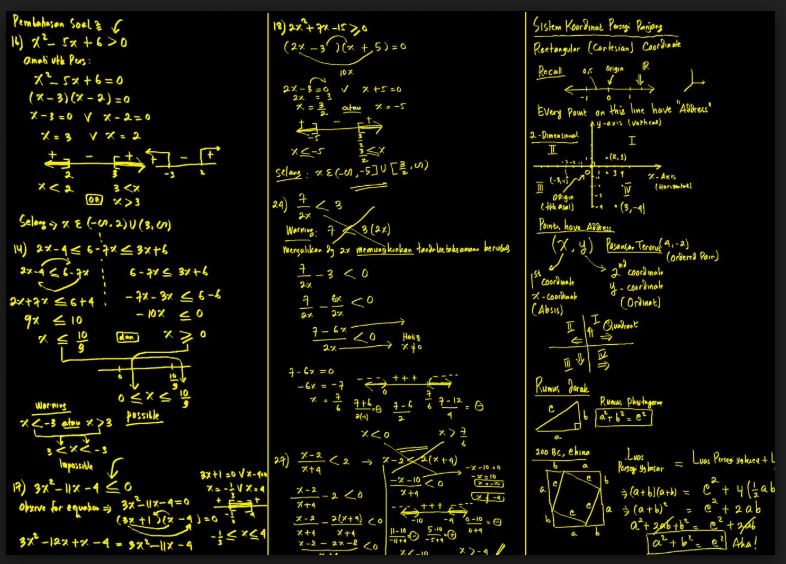 Pembahasan Soal2
16) x² - 5x + 6 > 0
amati utk Pers:
x² - 5x + 6 = 0
(x - 3)(x - 2) = 0
x - 3 = 0 V x - 2 = 0
x = 3 V x = 2
+ - +
2 3
+ - +
-3 2
x < 2 3 < x
OR x > 3
Selang → x ε (-∞, 2) U (3, ∞)
14) 2x - 4 ≤ 6 - 7x ≤ 3x + 6
2x - 4 ≤ 6 - 7x 6 - 7x ≤ 3x + 6
2x + 7x ≤ 6 + 4 -7x - 3x ≤ 6 - 6
9x ≤ 10 -10x ≤ 0
x ≤ 10/9 dan x ≥ 0
0 10/9
0 ≤ x ≤ 10/9
Warning possible
x < -3 atau x > 3
3 < x < -3
Impossible
17) 3x² - 11x - 4 ≤ 0
Observe for equation ⇒ 3x² - 11x - 4 = 0
(3x + 1)(x - 4) = 0
3x² - 12x + x - 4 = 3x² - 11x - 4
x = -1/3 V x = 4
-1/3 ≤ x ≤ 4
18) 2x² + 7x - 15 ≥ 0
(2x - 3)(x + 5) = 0
10x
2x - 3 = 0 V x + 5 = 0
2x = 3
x = 3/2 atau x = -5
+ - +
-5 3/2
x ≤ -5 3/2 ≤ x
Selang: x ε (-∞, -5] U [3/2, ∞)
24) 7/2x < 3
Warning: 7 < 3(2x)
Mengalikan dg 2x memungkinkan tanda ketaksamaan berubah
7/2x - 3 < 0
7/2x - 6x/2x < 0
7 - 6x / 2x < 0
x ≠ 0
7 - 6x = 0
-6x = -7
x = 7/6
+++
0 7/6
x < 0 x > 7/6
27) x-2/x+4 < 2 → x - 2 < 2(x + 4)
x-2/x+4 - 2 < 0
x-2/x+4 - 2(x+4)/x+4 < 0
x - 2 - 2x - 8 / x+4 < 0
-x-10/x+4 < 0
-x - 10 = 0
+++
-10 -4
x < -10 x > -4
Sistem Koordinat Persegi Panjang
Rectangular (Cartesian) Coordinate
Recall 0,5 Origin IR
-1 0 1
Every Point on this line have "Address"
y-axis (vertical)
2-Dimensional
II I
(2, 3)
x-Axis
(Horizontal)
III IV
Origin
(3, -4)
Points have Address
(x, y) Pasangan Terurut (4, -2)
(Ordered Pair)
1st coordinate 2nd coordinate
x - coordinate y - coordinate
(Absis) (Ordinat)
II I Quadrant
III IV
Rumus Jarak
c b Rumus Phytagoras
a a² + b² = c²
200 BC, China
Luas Persegi yg besar = Luas Persegi yg kecil + L
⇒ (a+b)(a+b) = c² + 4(½ab
⇒ (a+b)² = c² + 2ab
a² + 2ab + b² = c² + 2ab
a² + b² = c² Aha!